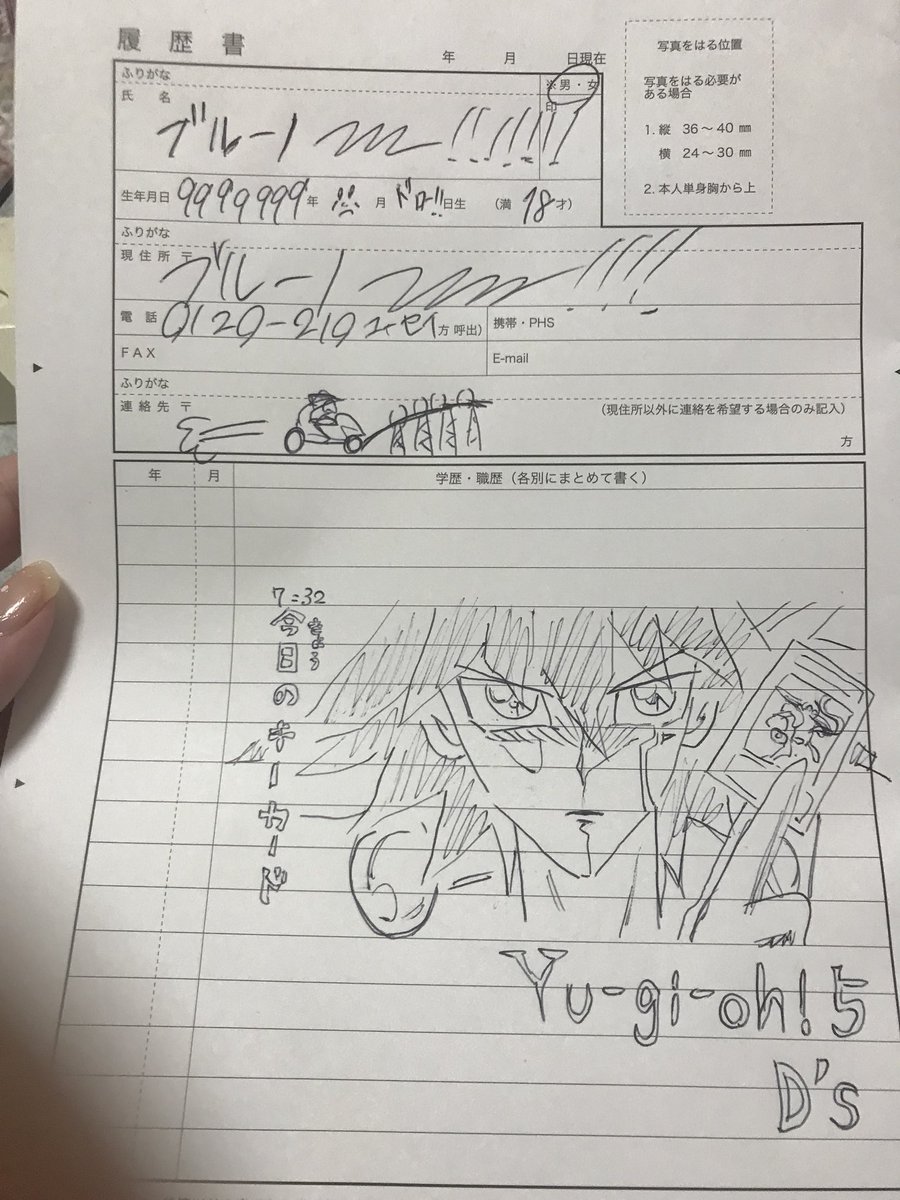 履歴書
年 月 日現在
ふりがな
※男・女
氏 名
印
ブルーノ〰〰!!!!!!!
生年月日 9999999年 月 ドロー!!日生 (満 18才)
写真をはる位置
写真をはる必要が
ある場合
1. 縦 36〜40 ㎜
横 24〜30 ㎜
2. 本人単身胸から上
ふりがな
現住所 〒
ブルーノ〰〰!!!!
電 話 0120-210 ユーセイ方 呼出)
携帯・PHS
FAX
E-mail
ふりがな
連絡先 〒
(現住所以外に連絡を希望する場合のみ記入)
方
年 月 学歴・職歴(各別にまとめて書く)
7:32
今日のキーカード
きょう
Yu-gi-oh! 5
D's